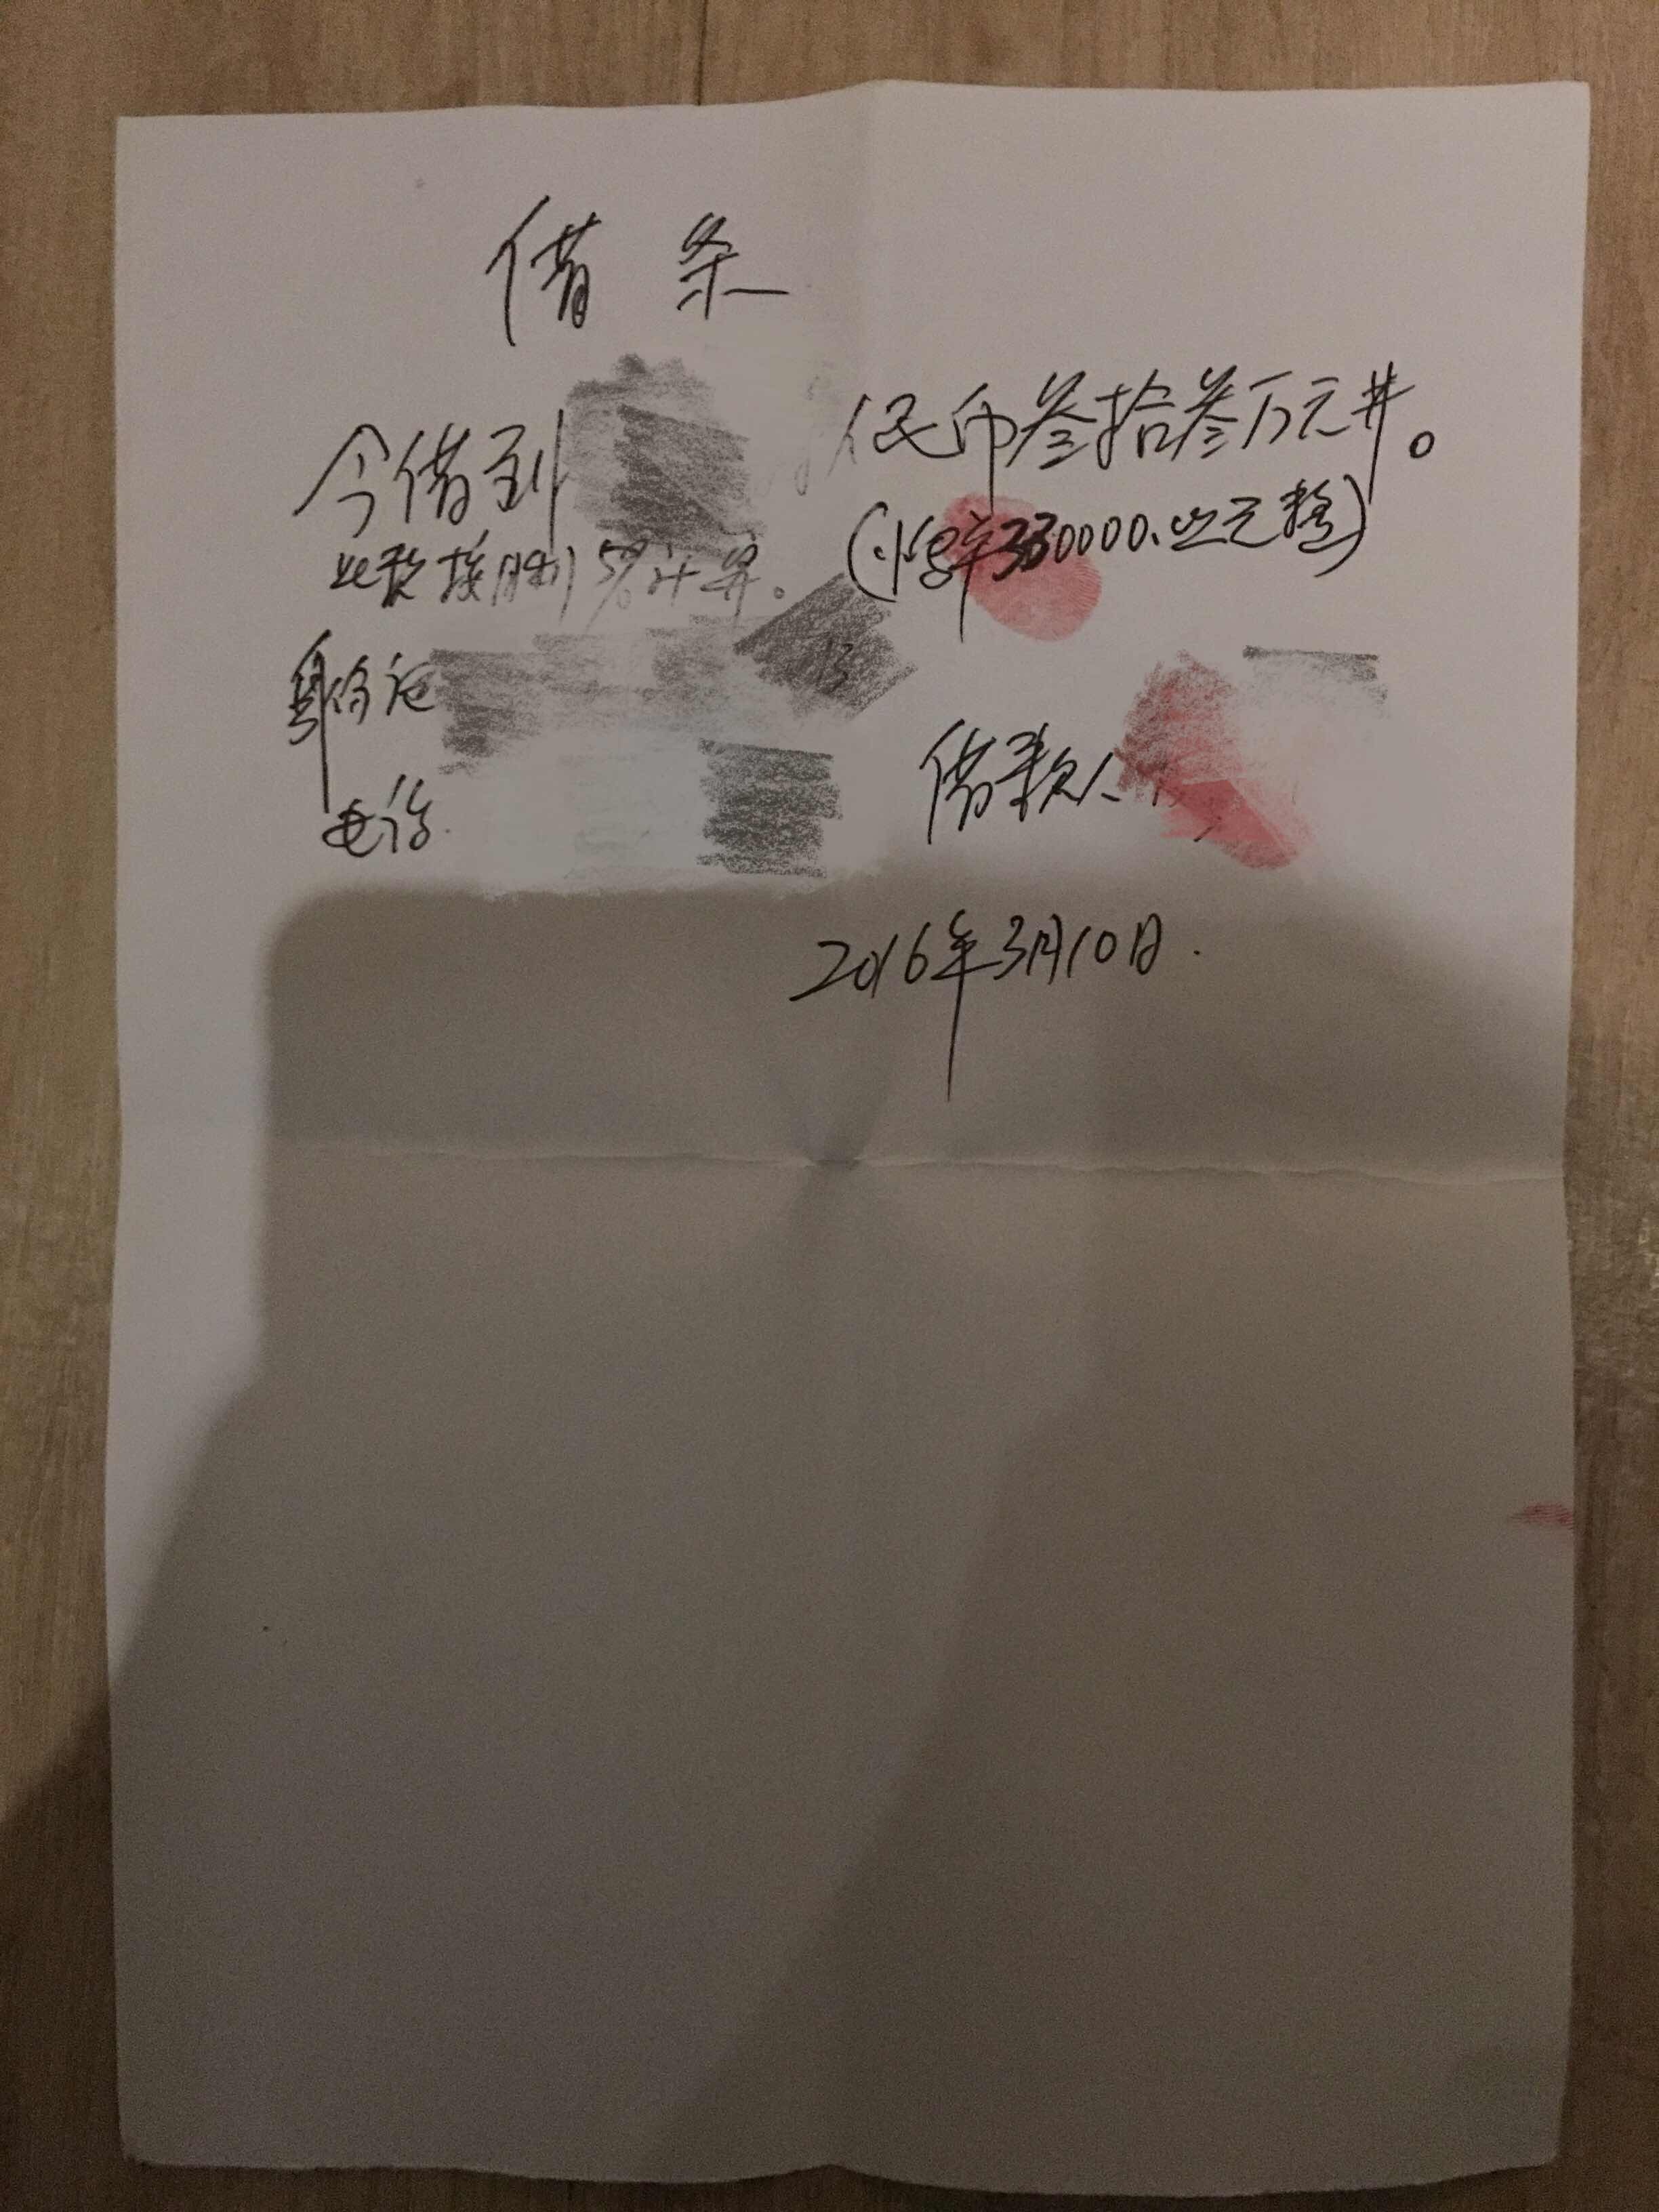 借条
今借到 人民币叁拾叁万元井。
此款按月利5%计算。(小写330000.00元整)
身份证 13
电话. 借款人
2016年3月10日.